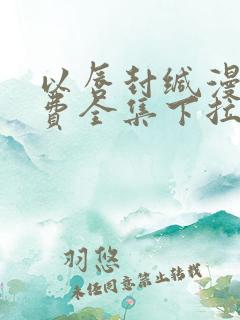 以唇封缄漫
费全集下拉
羽悠
未经同意禁止转载